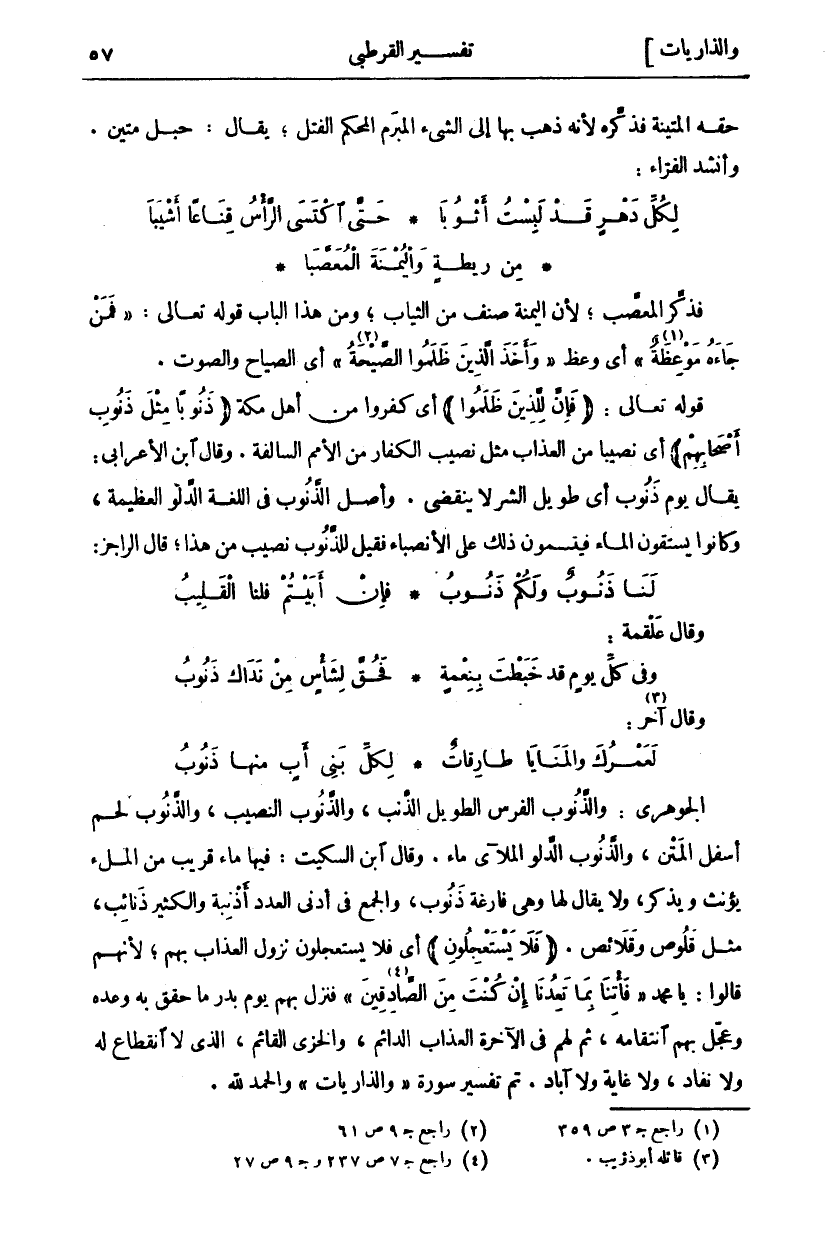 والذاريات ] تفسير القرطبي ٥٧
حقه المتينة فذكّره لأنه ذهب بها إلى الشىء المبرَم المحكم الفتل ؛ يقال : حبل متين .
وأنشد الفرّاء :
لِكُلِّ دَهْرٍ قَدْ لَبِسْتُ أَثْوُبَا * حَتَّى ٱكْتَسَى الرَّأْسُ قِنَاعًا أَشْيَبَا
* مِن ريطةٍ وَالْيُمْنَةَ الْمُعَصَّبَا *
فذكّر المعصّب ؛ لأن اليمنة صنف من الثياب ؛ ومن هذا الباب قوله تعالى : « فَمَنْ
جَاءَهُ مَوْعِظَةٌ (١) » أى وعظ « وَأَخَذَ الَّذِينَ ظَلَمُوا الصَّيْحَةُ (٢) » أى الصياح والصوت .
قوله تعالى : ﴿ فَإِنَّ لِلَّذِينَ ظَلَمُوا ﴾ أى كفروا من أهل مكة ﴿ ذَنُوبًا مِثْلَ ذَنُوبِ
أَصْحَابِهِمْ ﴾ أى نصيبا من العذاب مثل نصيب الكفار من الأمم السالفة . وقال ٱبن الأعرابى :
يقال يوم ذَنُوب أى طويل الشر لا ينقضى . وأصل الذَّنُوب فى اللغة الدلْو العظيمة ،
وكانوا يستقون الماء فيقسمون ذلك على الأنصباء فقيل للذَّنُوب نصيب من هذا ؛ قال الراجز :
لَنَا ذَنُوبٌ ولَكُمْ ذَنُوبُ * فإِنْ أَبَيْتُمْ فلنا الْقَلِيبُ
وقال عَلْقمة :
وفى كلِّ يومٍ قد خَبَطْتَ بِنِعْمةٍ * فَحُقَّ لِشَأْسٍ مِنْ نَدَاك ذَنُوبُ
وقال آخر (٣) :
لَعَمْرُكَ والمَنَايَا طارِقاتٌ * لِكلِّ بَنِى أَبٍ منها ذَنُوبُ
الجوهرى : والذَّنُوب الفرس الطويل الذَّنب ، والذَّنُوب النصيب ، والذَّنُوب لحم
أسفل المَتْن ، والذَّنُوب الدلو الملآى ماء . وقال ٱبن السكيت : فيها ماء قريب من الملء
يؤنث ويذكر ، ولا يقال لها وهى فارغة ذَنُوب ، والجمع فى أدنى العدد أَذْنِبة والكثير ذَنائِب ،
مثل قَلُوص وقَلَائص . ﴿ فَلَا يَسْتَعْجِلُونِ ﴾ أى فلا يستعجلون نزول العذاب بهم ؛ لأنهم
قالوا : يا محمد « فَأْتِنَا بِمَا تَعِدُنَا إِنْ كُنْتَ مِنَ الصَّادِقِينَ (٤) » فنزل بهم يوم بدر ما حقق به وعده
وعجّل بهم ٱنتقامه ، ثم لهم فى الآخرة العذاب الدائم ، والخزى القائم ، الذى لا ٱنقطاع له
ولا نفاد ، ولا غاية ولا آباد . تم تفسير سورة « والذاريات » والحمد لله .
(١) راجع جـ ٣ ص ٣٥٩ (٢) راجع جـ ٩ ص ٦١
(٣) قائله أبو ذؤيب . (٤) راجع جـ ٧ ص ٢٣٧ وجـ ٩ ص ٢٧